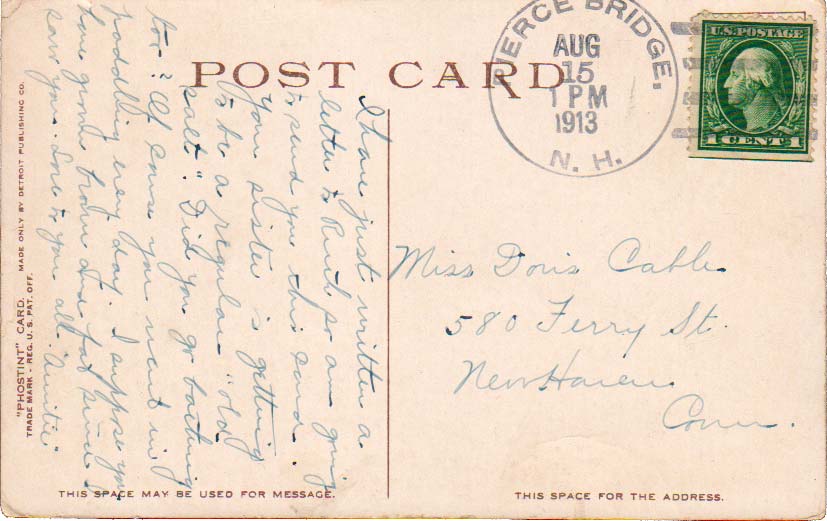 POST CARD
PIERCE BRIDGE.
AUG
15
1 PM
1913
N. H.
U.S. POSTAGE
1 CENT 1
I have just written a
letter to Ruth so am going
to send you this card.
Your sister is getting
to be a regular "old
salt." Did you go bathing
too? Of course you went in
paddling every day. I suppose you
have grown brown and fat since I
saw you. Love to you all. Auntie
Miss Doris Cable
580 Ferry St.
New Haven
Conn.
"PHOSTINT" CARD. MADE ONLY BY DETROIT PUBLISHING CO.
TRADE MARK - REG. U. S. PAT. OFF.
THIS SPACE MAY BE USED FOR MESSAGE.
THIS SPACE FOR THE ADDRESS.